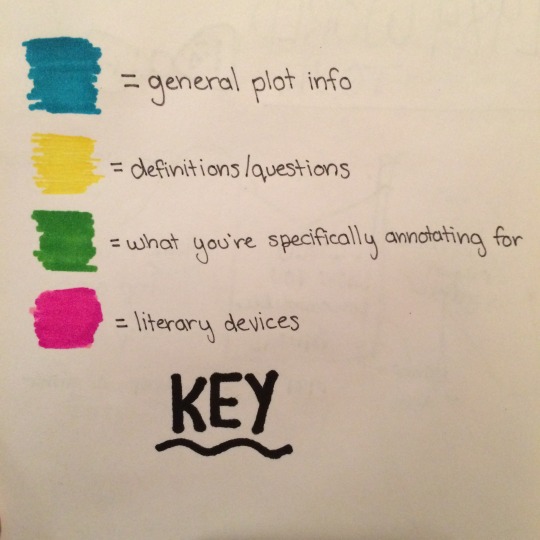 = general plot info
= definitions/questions
= what you're specifically annotating for
= literary devices
KEY